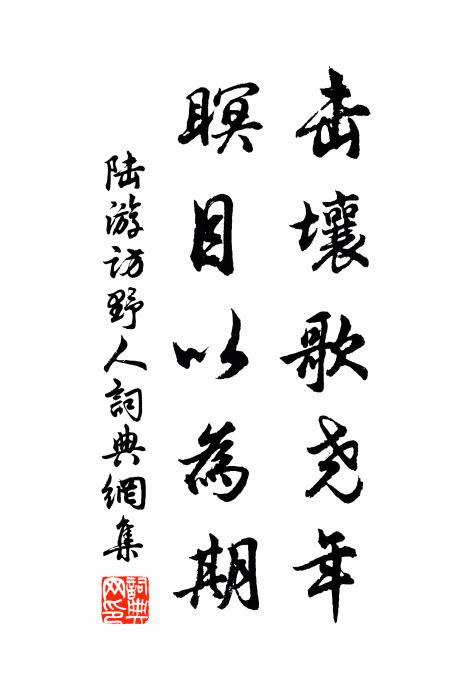 击壤歌尧年
瞑目以為期
陆游访野人詞典網集
詞典网印